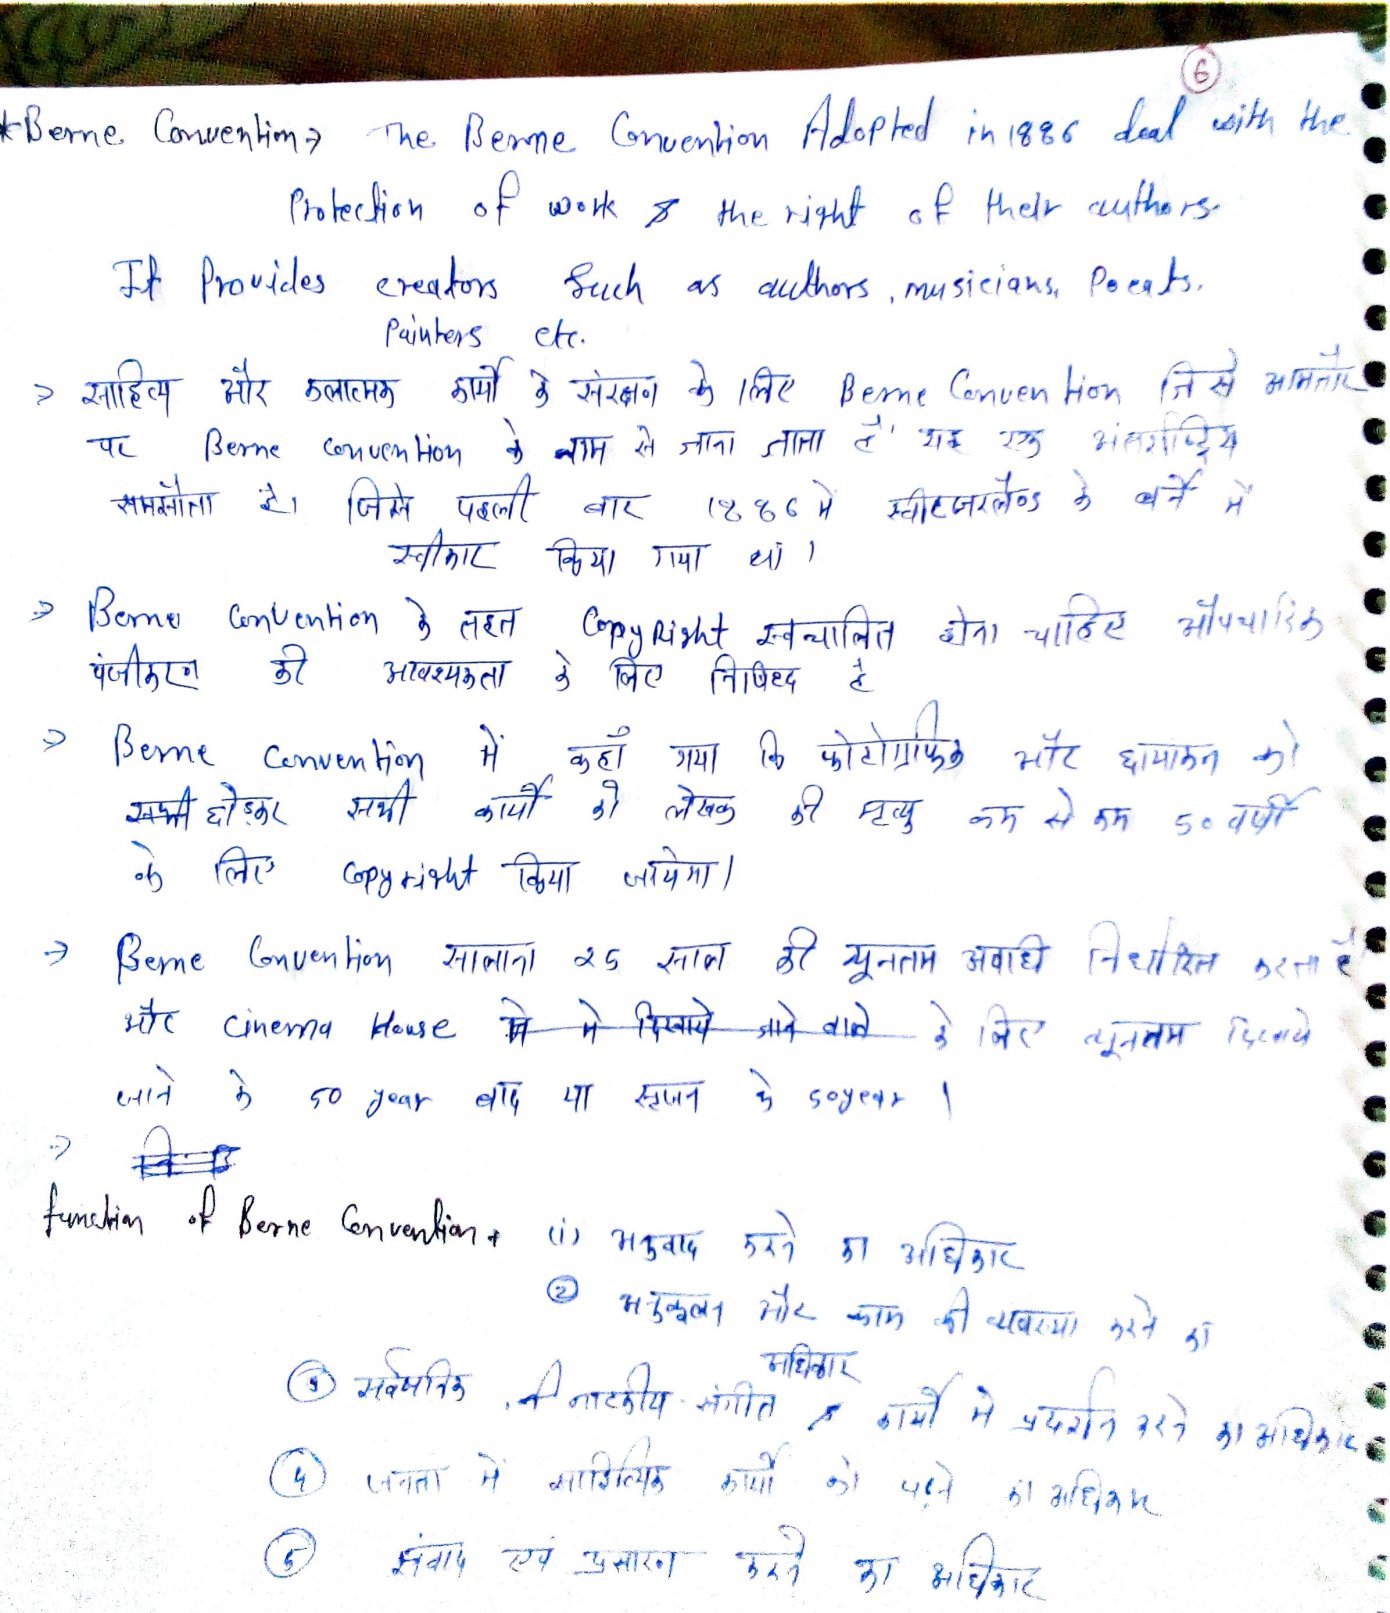 6
*Berne Convention → The Berne Convention Adopted in 1886 deal with the
Protection of work & the right of their authors.
It Provides creators such as authors, musicians, Poeats,
Painters etc.
→ साहित्य और कलात्मक कार्यो के संरक्षण के लिए Berne Convention जिसे आमतौर
पर Berne convention के नाम से जाना जाता है। यह एक अंतर्राष्ट्रिय
समझौता है। जिसे पहली बार 1886 मे स्वीटजरलैण्ड के बर्ने में
स्वीकार किया गया था।
→ Berne Convention के तहत Copy Right स्वचालित होना चाहिए औपचारिक
पंजीकरण की आवश्यकता के लिए निषिद्द है
→ Berne Convention में कहाँ गया कि फोटोग्राफिक और छायाकन को
छोड़कर सभी कार्यो को लेखक की मृत्यु कम से कम 50 वर्षो
के लिए copyright किया जायेगा।
→ Berne Convention सालाना 25 साल की न्यूनतम अवाधि निर्धारित करता है
और cinema House मे मे दिखाये जाने वाले के लिए न्यूनतम दिखाये
जाने के 50 year बाद या सृजन के 50year।
→
function of Berne Convention → (i) अनुवाद करने का अधिकार
② अनुकूलन और काम की व्यवस्था करने का
अधिकार
③ की नाटकीय संगीत & कार्यो मे प्रदर्शन करने का अधिकार
④ जनता में साहित्यिक कार्यो को पढ़ने का अधिकार
⑤ संवाद एवं प्रसारण करने का अधिकार